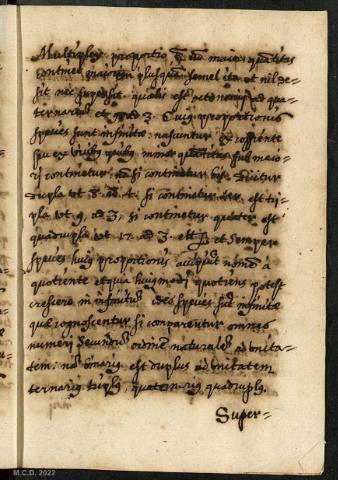 Multiplex proportio est cum maior quantitas
continet minorem plusquam semel ita ut nil de=
sit nec supersit. qualis est octonarij ad qua=
ternarium et 9 ad 3. Cuius proportionis
species sunt infinitæ nascuntur
minor quantitas in maio=
ri continetur. si continetur bis dicitur
dupla ut 8 ad 4. si continetur ter, est tri=
pla ut 9 ad 3, si continetur quater est
quadrupla ut 12 ad 3. et semper
species huius proportionis accipiunt nomen à
quotiente et quia huiusmodi quotiens potest
crescere in infinitum ideo species sunt infinitæ
quæ cognoscentur si comparentur omnes
numeri secundum ordinem naturalem ad unita=
tem. nam binarius est duplus ad unitatem
ternarius triplus, quaternarius quadruplus.
Super=
M.C.D. 2022